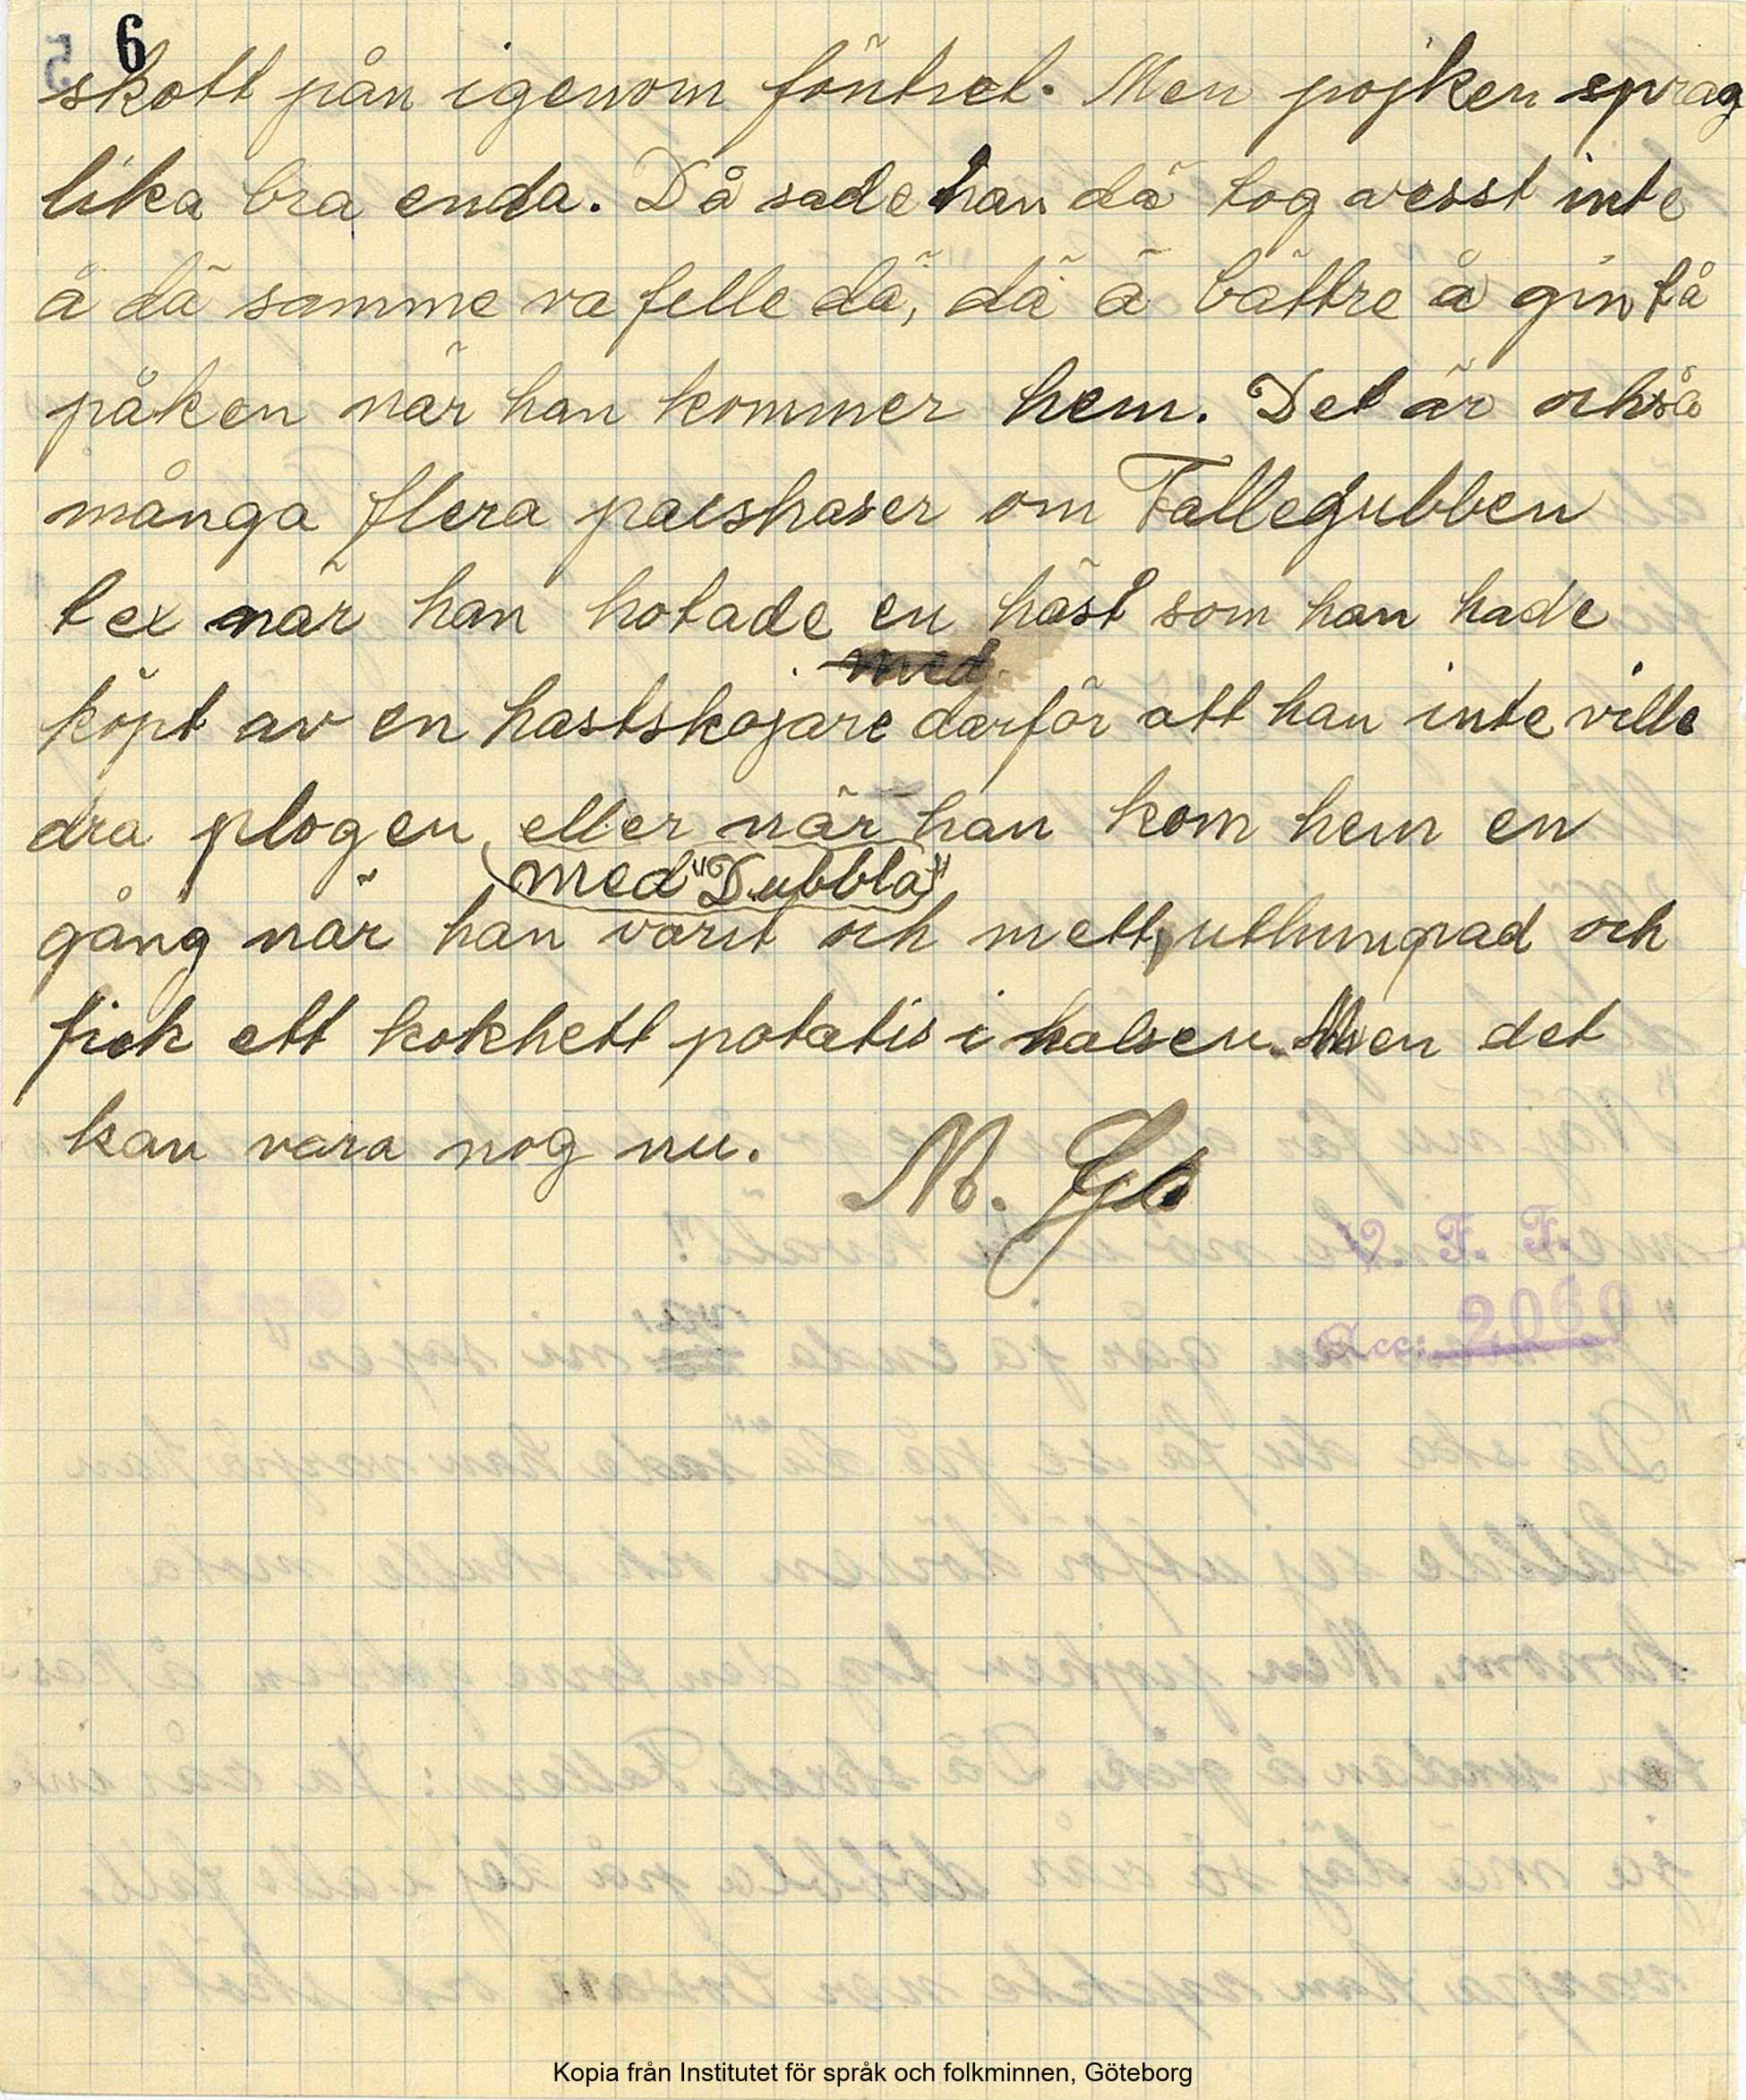 6
skott pån igenom föntret. Men pojken sprag
lika bra enda. Då sade han dä tog vesst inte
å dä samme va felle dä, dä ä bättre å gin få
påken när han kommer hem. Det är också
många flera paishaser om Fallegubben
t ex när han hotade en häst som han hade
köpt av en hästskojare därför att han inte ville
dra plogen, eller när han kom hem en
med "Dubbla"
gång när han varit och mett, uthungrad och
fick ett kokhett potatis i halsen. Men det
kan vara nog nu.
V. F. F.
Acc: 2060
Kopia från Institutet för språk och folkminnen, Göteborg